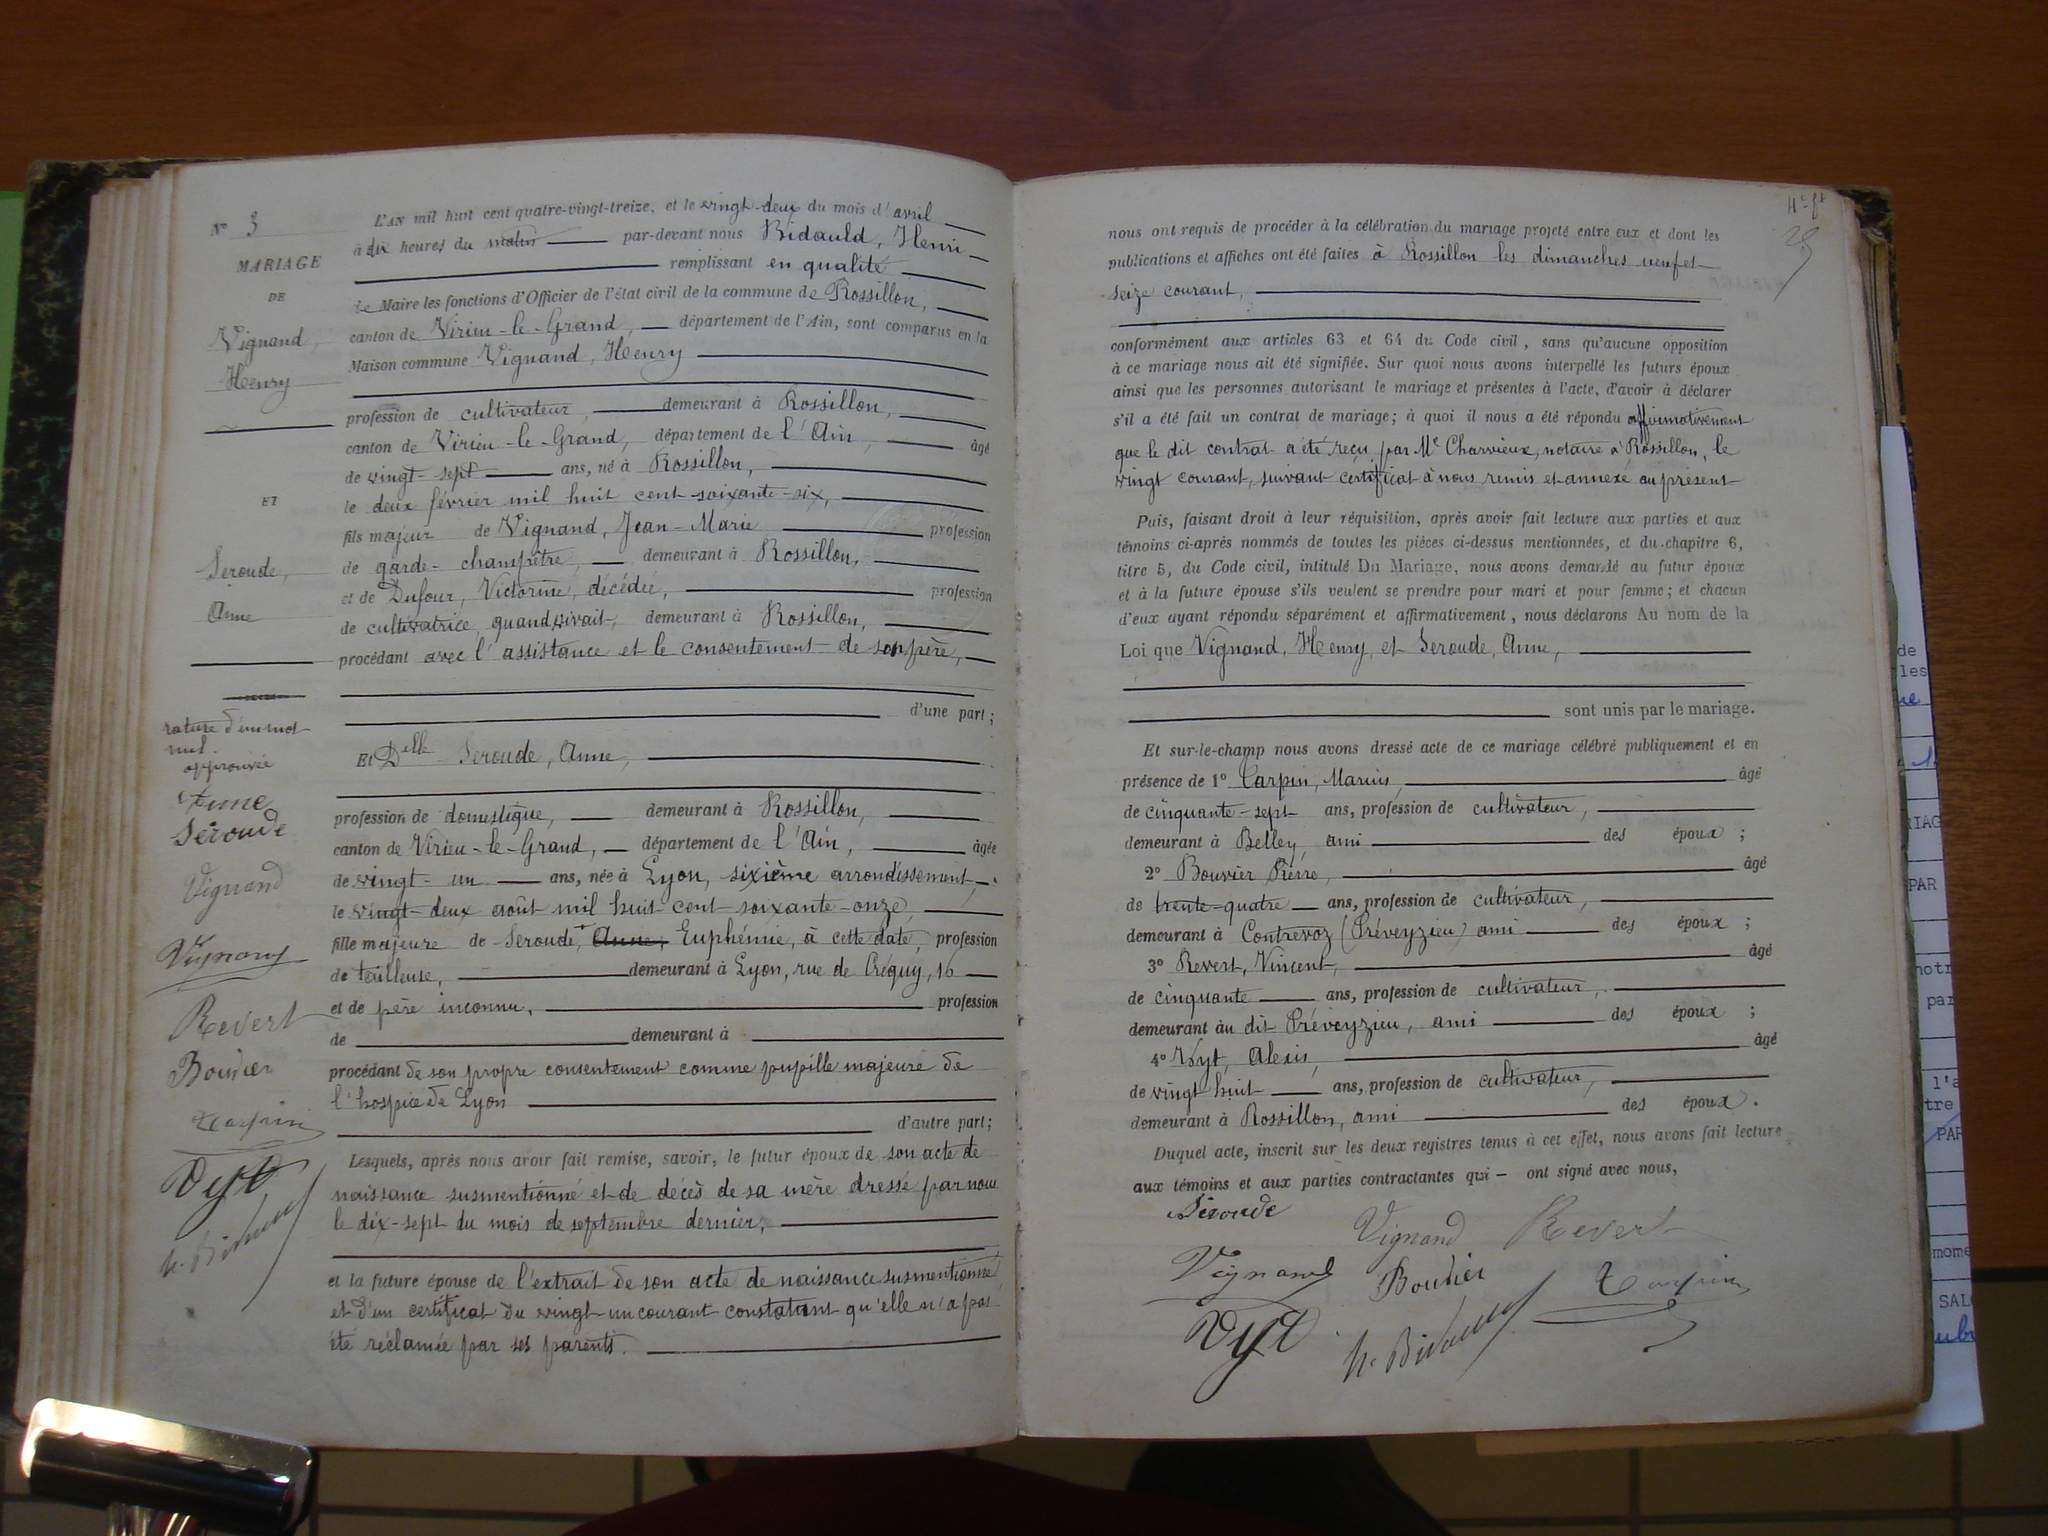 N° 3
MARIAGE
DE
Vignand,
Henry
ET
Seroude,
Anne
rature d'un mot
nul.
approuvée
Anne
Seroude
Vignand
Vignand
Revert
Bouvier
Carpin
Vyt
h. Bidauld
L'AN mil huit cent quatre-vingt-treize, et le vingt-deux du mois d'avril
à dix heures du matin par-devant nous Bidauld, Henri
remplissant en qualité
de Maire les fonctions d'Officier de l'état civil de la commune de Rossillon,
canton de Virieu-le-Grand, département de l'Ain, sont comparus en la
Maison commune Vignand, Henry
profession de cultivateur, demeurant à Rossillon,
canton de Virieu-le-Grand, département de l'Ain, âgé
de vingt-sept ans, né à Rossillon,
le deux février mil huit cent soixante-six,
fils majeur de Vignand, Jean-Marie profession
de garde-champêtre, demeurant à Rossillon,
et de Dufour, Victorine, décédée, profession
de cultivatrice quand vivait, demeurant à Rossillon,
procédant avec l'assistance et le consentement de son père,
d'une part;
Et Delle Seroude, Anne,
profession de domestique, demeurant à Rossillon,
canton de Virieu-le-Grand, département de l'Ain, âgée
de vingt-un ans, née à Lyon, sixième arrondissement,
le vingt-deux août mil huit cent soixante-onze,
fille majeure de Seroude, Anne, Euphémie, à cette date, profession
de tulleuse, demeurant à Lyon, rue de Créquy, 16
et de père inconnu, profession
de demeurant à
procédant de son propre consentement comme pupille majeure de
l'hospice de Lyon
d'autre part;
Lesquels, après nous avoir fait remise, savoir, le futur époux de son acte de
naissance susmentionné et de décès de sa mère dressé par nous
le dix-sept du mois de septembre dernier,
et la future épouse de l'extrait de son acte de naissance susmentionné
et d'un certificat du vingt-un courant constatant qu'elle n'a pas
été réclamée par ses parents.
29
nous ont requis de procéder à la célébration du mariage projeté entre eux et dont les
publications et affiches ont été faites à Rossillon les dimanches neuf et
seize courant,
conformément aux articles 63 et 64 du Code civil, sans qu'aucune opposition
à ce mariage nous ait été signifiée. Sur quoi nous avons interpellé les futurs époux
ainsi que les personnes autorisant le mariage et présentes à l'acte, d'avoir à déclarer
s'il a été fait un contrat de mariage; à quoi il nous a été répondu affirmativement
que le dit contrat a été reçu par Me Charvieux, notaire à Rossillon, le
vingt courant, suivant certificat à nous remis et annexé au présent
Puis, faisant droit à leur réquisition, après avoir fait lecture aux parties et aux
témoins ci-après nommés de toutes les pièces ci-dessus mentionnées, et du chapitre 6,
titre 5, du Code civil, intitulé Du Mariage, nous avons demandé au futur époux
et à la future épouse s'ils veulent se prendre pour mari et pour femme; et chacun
d'eux ayant répondu séparément et affirmativement, nous déclarons Au nom de la
Loi que Vignand, Henry, et Seroude, Anne,
sont unis par le mariage.
Et sur-le-champ nous avons dressé acte de ce mariage célébré publiquement et en
présence de 1° Carpin, Marius, âgé
de cinquante-sept ans, profession de cultivateur,
demeurant à Belley, ami des époux;
2° Bouvier Pierre, âgé
de trente-quatre ans, profession de cultivateur,
demeurant à Contrevoz (Préveyzieu) ami des époux;
3° Revert, Vincent, âgé
de cinquante ans, profession de cultivateur,
demeurant au dit Préveyzieu, ami des époux;
4° Vyt, Alexis, âgé
de vingt huit ans, profession de cultivateur,
demeurant à Rossillon, ami des époux.
Duquel acte, inscrit sur les deux registres tenus à cet effet, nous avons fait lecture
aux témoins et aux parties contractantes qui ont signé avec nous,
Seroude
Vignand
Revert
Vignand
Bouvier
Carpin
Vyt
h. Bidauld